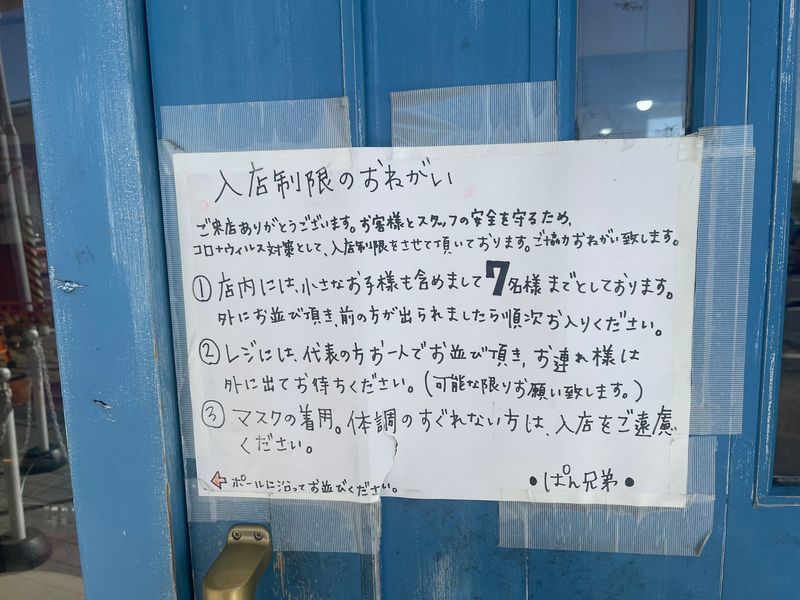 入店制限のおねがい
ご来店ありがとうございます。お客様とスタッフの安全を守るため、
コロナウィルス対策として、入店制限をさせて頂いております。ご協力おねがい致します。
①店内には、小さなお子様も含めまして7名様までとしております。
外にお並び頂き、前の方が出られましたら順次お入りください。
②レジには、代表の方お一人でお並び頂き、お連れ様は
外に出てお待ちください。(可能な限りお願い致します。)
③マスクの着用。体調のすぐれない方は、入店をご遠慮
ください。
⇦ポールに沿ってお並びください。
•ぱん兄弟•